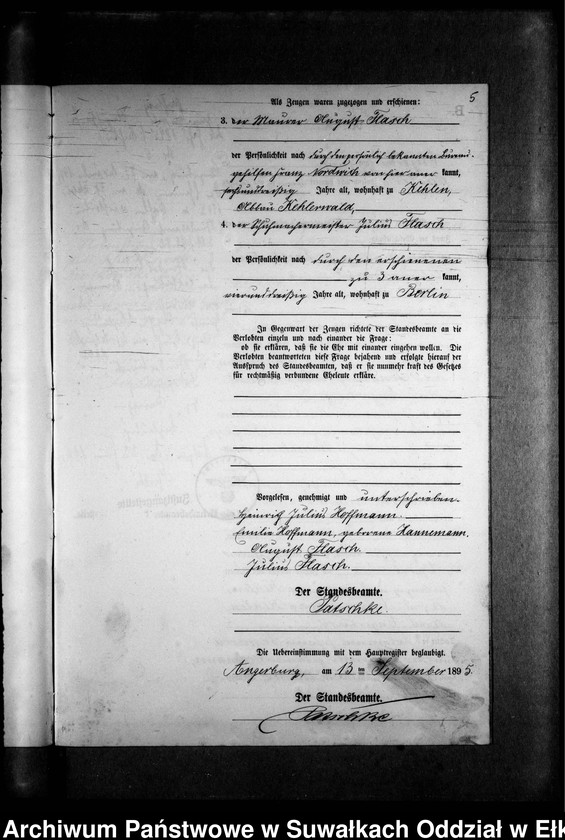 5
Als Zeugen waren zugezogen und erschienen:
3. der Maurer August Flasch
der Persönlichkeit nach durch den persönlich bekannten Bureau-
gehilfen Franz Nordwich von hier aner kannt,
sechsunddreißig Jahre alt, wohnhaft zu Kehlen,
Abbau Kehlerwald,
4. der Schuhmachermeister Julius Flasch
der Persönlichkeit nach durch den erschienenen
zu 3 aner kannt,
vierunddreißig Jahre alt, wohnhaft zu Berlin
In Gegenwart der Zeugen richtete der Standesbeamte an die
Verlobten einzeln und nach einander die Frage:
ob sie erklären, daß sie die Ehe mit einander eingehen wollen. Die
Verlobten beantworteten diese Frage bejahend und erfolgte hierauf der
Ausspruch des Standesbeamten, daß er sie nunmehr kraft des Gesetzes
für rechtmäßig verbundene Eheleute erkläre.
Vorgelesen, genehmigt und unterschrieben.
Heinrich Julius Hoffmann.
Emilie Hoffmann, geborene Hannemann.
August Flasch.
Julius Flasch.
Der Standesbeamte.
Patschke.
Die Uebereinstimmung mit dem Hauptregister beglaubigt.
Angerburg, am 13 ten September 1895.
Der Standesbeamte.
Patschke
Archiwum Państwowe w Suwałkach Oddział w Ełk